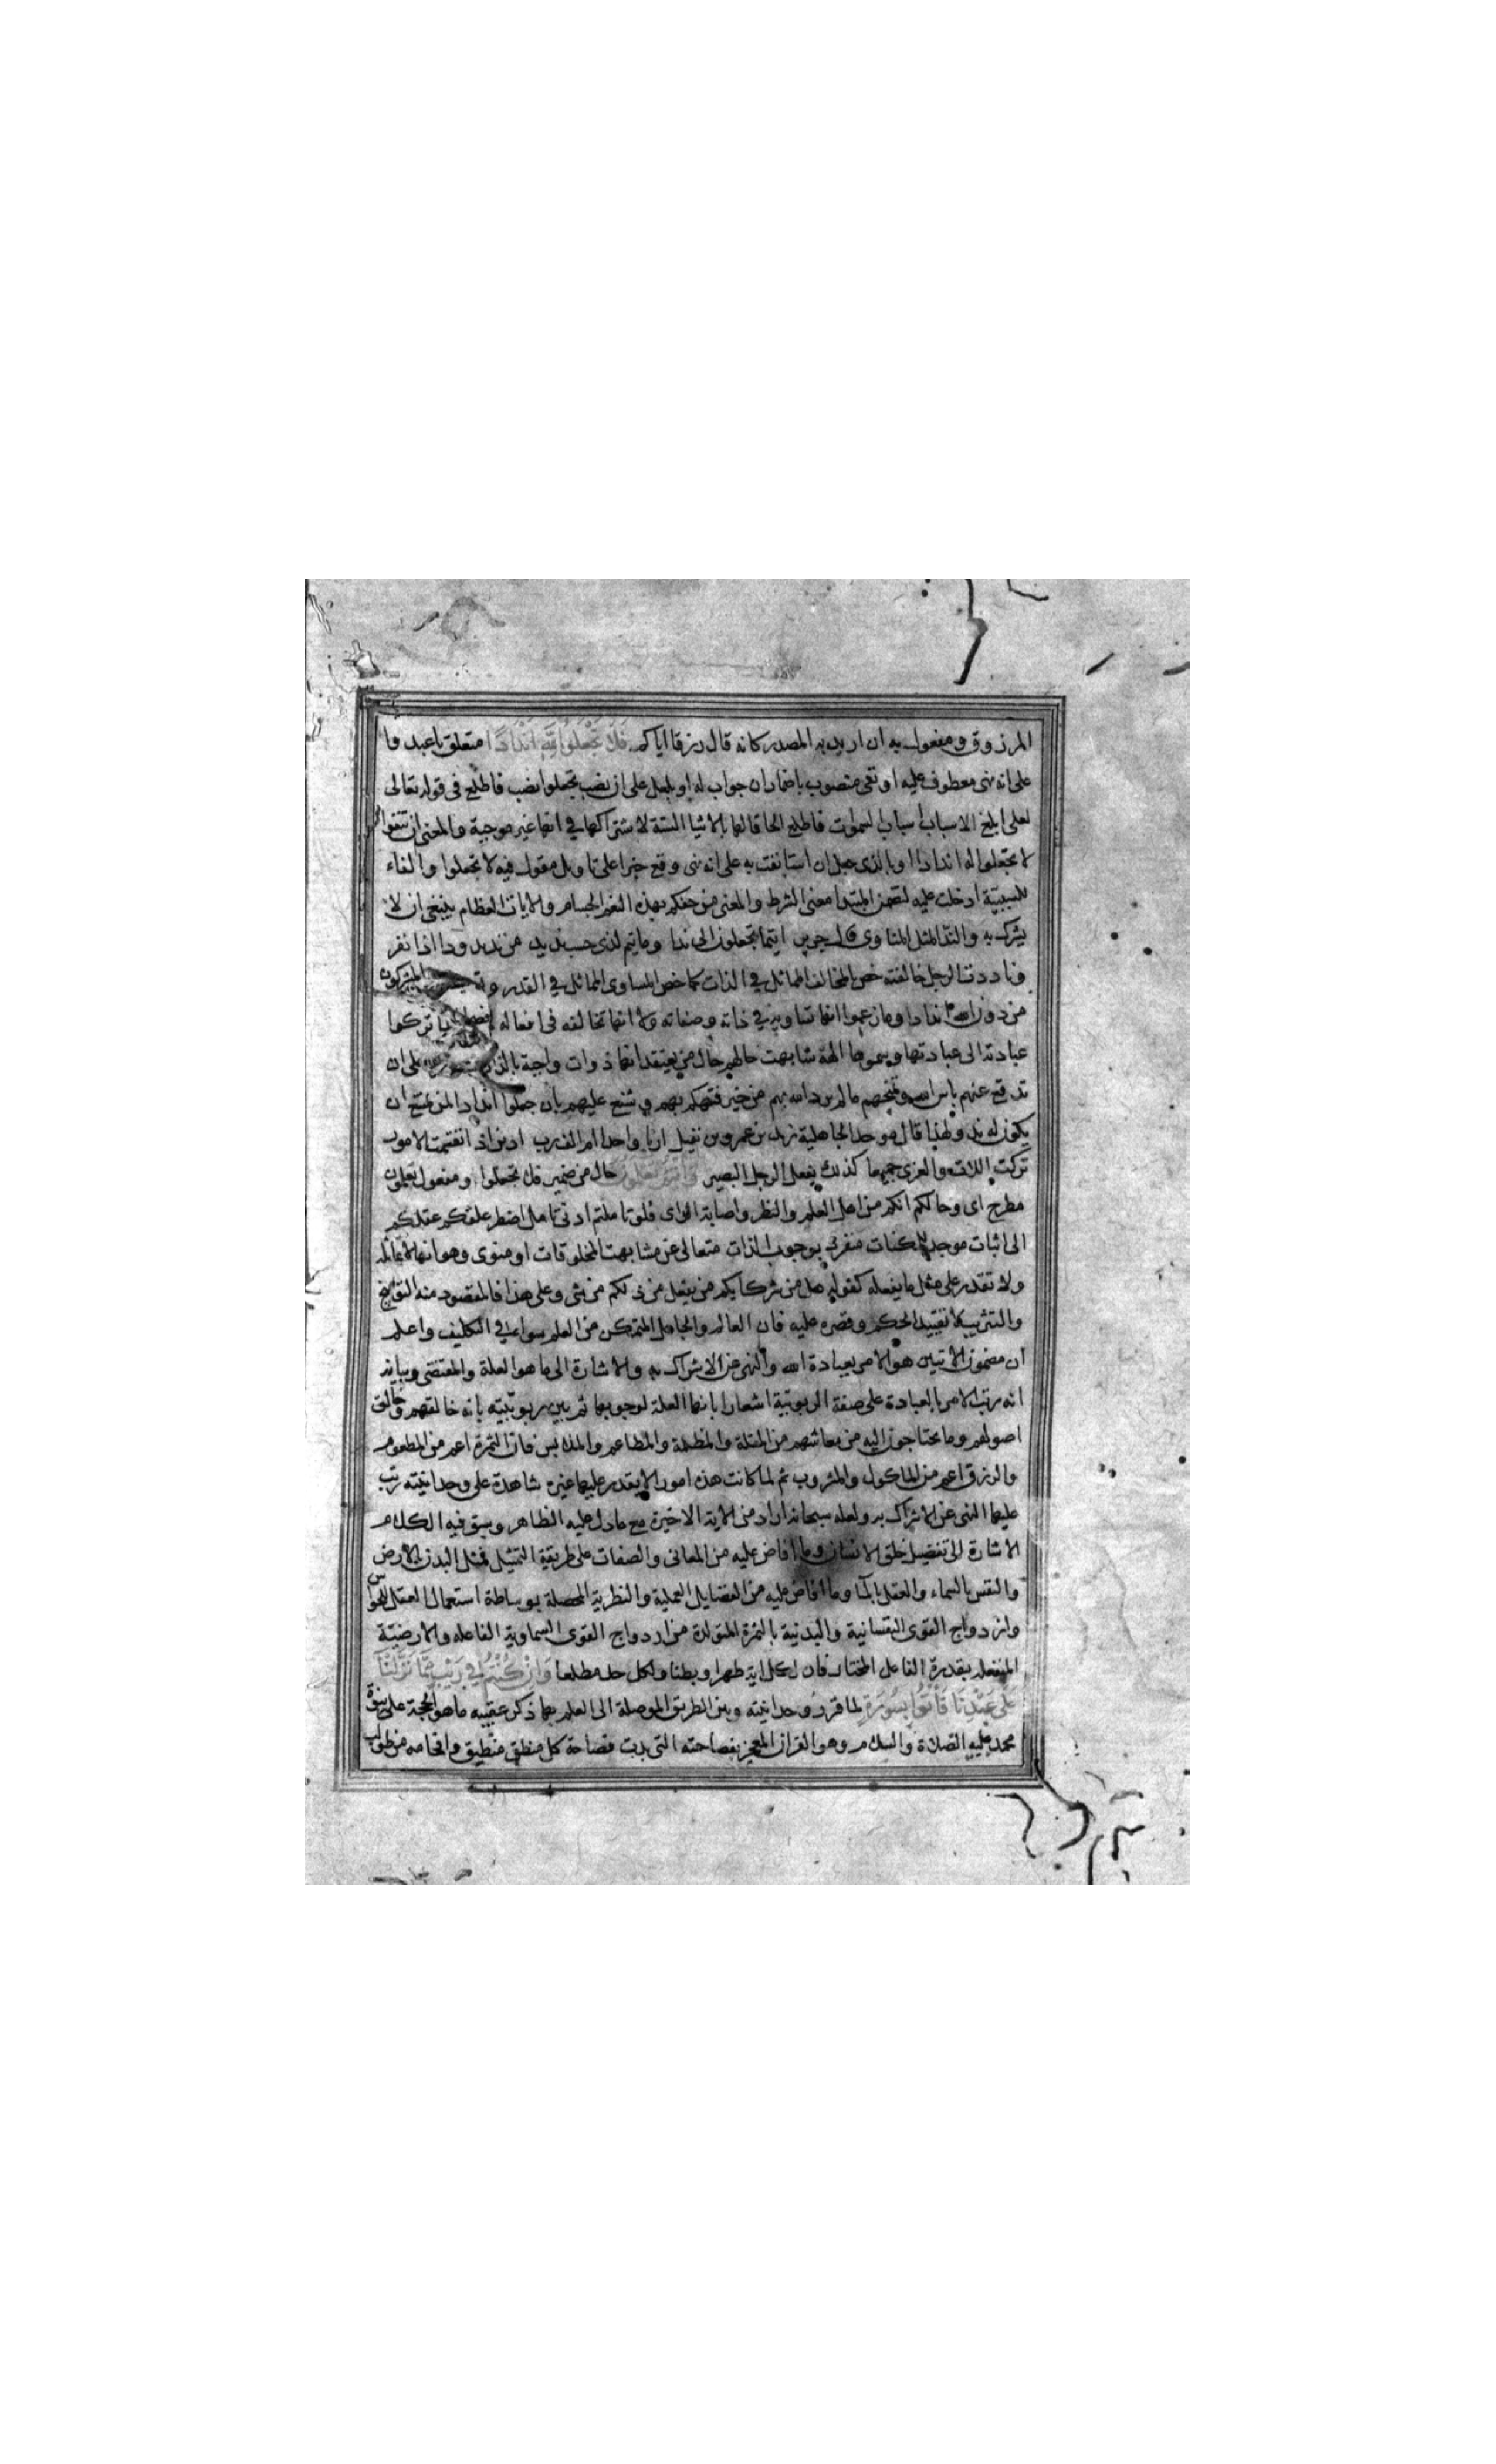 المرزوق ومفعول به ان اريد به المصدر كانه قال رزقا اياكم فَلا تَجْعَلُوا لِلَّهِ اَنْدَادًا متعلق باعبدوا
على انه نهى معطوف عليه او نفى منصوب باضمار ان جواب له او بلعل على ان نصب تجعلوا نصب فاطلع فى قوله تعالى
لعلى ابلغ الاسباب اسباب السموات فاطلع الحاقا لها بالاشيا الستة لاشتراكها في انها غير موجبة والمعنى ان تتقوا
لا تجعلوا له اندادا او بالذى جعل ان استانفت به على انه نهى وقع خبرا على تاويل مقول فيه لا تجعلوا والفاء
للسببية ادخلت عليه لتضمن المبتدا معنى الشرط والمعنى من حفكم بهذه النعم الجسام والايات العظام ينبغى ان لا
يشرك به والند المثل المناوى قال جرير اتيما تجعلون الى ندا وما تيم لذى حسب نديد من ند ندودا اذا نفر
وناددت الرجل خالفته خص بالمخالف المماثل في الذات كما خص المساوى المماثل في القدر المشركون
من دون الله اندادا وما زعموا انها تساويه في ذاته وصفاته ولا انها تخالفه فى افعاله تركها
عبادته الى عبادتها وسموها الهة شابهت حالهم حال من يعتقد انها ذوات واجبة بالذات على ان
تدفع عنهم باس الله وتمنحهم ما لم يرد الله بهم من خير فتهكم بهم وشنع عليهم بان جعلوا اندادا لمن يمتنع ان
يكون له ند ولهذا قال موحد الجاهلية زيد بن عمرو بن نفيل اربا واحدا ام الف رب ادين اذا انقسمت الامور
تركت اللات والعزى جميعا كذلك يفعل الرجل البصير وَاَنْتُمْ تَعْلَمُونَ حال من ضمير فلا تجعلوا ومفعول تعلمون
مطرح اى وحالكم انكم من اهل العلم والنظر واصابة الراى فلو تاملتم ادنى تامل اضطر عقلكم
الى اثبات موجد للممكنات منفرد بوجوب الذات متعالى عن مشابهت المخلوقات او منوى وهو انها لا تماثله
ولا تقدر على مثل ما يفعله كقوله هل من شركايكم من يفعل من ذلكم من شى وعلى هذا فالمقصود منه التوبيخ
والتثريب لا تقييد الحكم وقصره عليه فان العالم والجاهل المتمكن من العلم سواء في التكليف واعلم
ان مضمون الايتين هو الامر بعبادة الله والنهى عن الاشراك به والاشارة الى ما هو العلة والمقتضى وبيانه
انه رتب الامر بالعبادة على صفة الربوبية اشعارا بانها العلة لوجوبها ثم بين ربوبيته بانه خالقهم وخالق
اصولهم وما يحتاجون اليه من معاشهم من المقلة والمظلة والمطاعم والملابس فان الثمرة اعم من المطعوم
والرزق اعم من الماكول والمشروب ثم لما كانت هذه امورا لا يقدر عليها غيره شاهدة على وحدانيته رتب
عليها النهى عن الاشراك به ولعله سبحانه اراد من الاية الاخيرة مع ما دل عليه الظاهر وسيق فيه الكلام
الاشارة الى تفصيل خلق الانسان وما افاض عليه من المعانى والصفات على طريقة التمثيل فمثل البدن بالارض
والنفس بالسماء والعقل بالماء وما افاض عليه من الفضايل العملية والنظرية المحصلة بوساطة استعمال العقل للحواس
وازدواج القوى النفسانية والبدنية بالثمرة المتولدة من ازدواج القوى السماوية الفاعله والارضية
المنفعله بقدرة الفاعل المختار فان لكل اية ظهرا وبطنا ولكل حد مطلعا وَاِنْ كُنْتُمْ فِي رَيْبٍ مِمَّا نَزَّلْنَا
عَلَى عَبْدِنَا فَأْتُوا بِسُورَةٍ لما قرر وحدانيته وبين الطريق الموصلة الى العلم بها ذكر عقيبه ما هو الحجة على نبوة
محمد عليه الصلاة والسلام وهو القران المعجز بفصاحته التى بدت فصاحة كل منطيق وافحامه من طولب